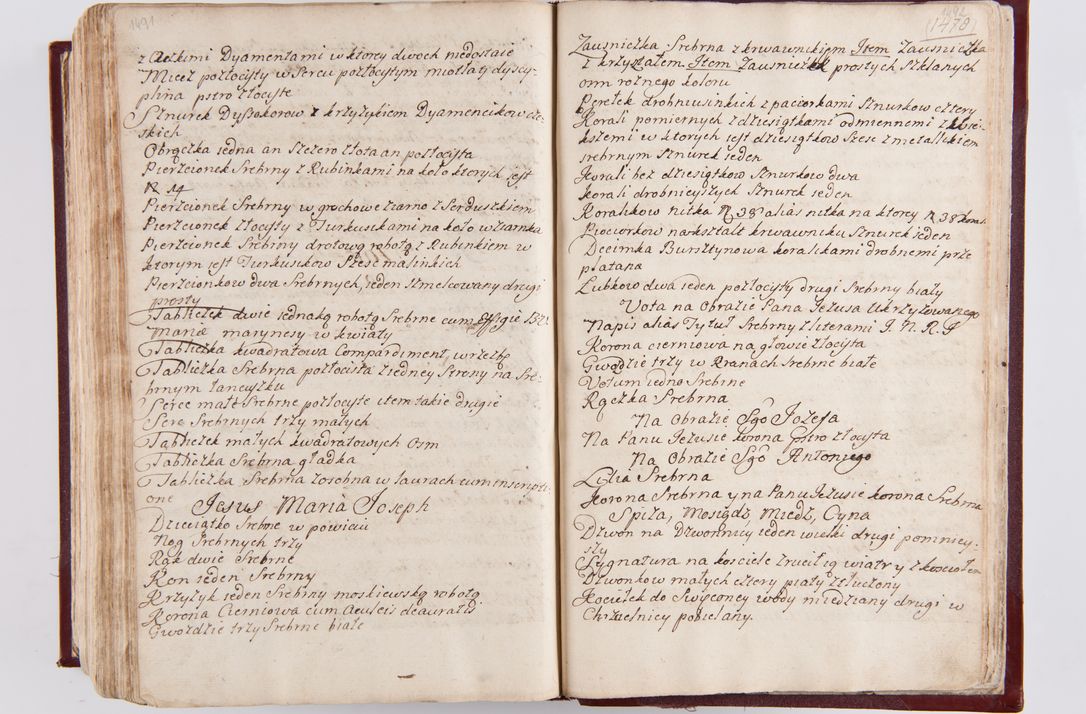 1491
z Czeskimi Dyamentami w ktorey dwoch niedostaie
Miecz pozłocisty w Sercu pozłocistym miotłaty dyscy-
plina pstro złociste
Sznurek Dyszokorow z krzyżykiem Dyamencikow cze-
skich
Obrączka iedna an Szczero złota an pozłocista
Pierzcionek Srebrny z Rubinkami na koło ktorych jest
N 14
Pierzcionek Srebrny w grochowe ziarno z Serduszkiem
Pierzcionek złocisty z Turkusikami na koło w ziarnka
Pierzcionek Srebrny drotową robotą z Rubinkiem w
ktorym jest Turkusikow Szesc malinkich
Pierzcionkow dwa Srebrnych, ieden szmelcowany drugi
prosty
Tabliczek dwie iednaką robotą Srebrne cum Effigie B:V:
Mariæ marynesy w kwiaty
Tabliczka kwadratowa Compardiment, w rzezbę
Tabliczka Srebrna pozłocista z iedney Strony na Sre-
brnym łancuszku
Serce małe Srebrne pozłocyste item takie drugie
Serc Srebrnych trzy małych
Tabliczek małych kwadratowych Osm
Tabliczka Srebrna gładka
Tabliczka Srebrna zosobna w laurach cum inscripti-
one
Jesus Maria Joseph
Dzieciątko Srebrne w powiciu
Nog Srebrnych trzy
Rąk dwie Srebrne
Kon ieden Srebrny
Krzyżyk ieden Srebrny moskiewską robotą
Korona Cierniowa cum Aculeis deaurata
Gwozdzie trzy Srebrne białe
1492
1478
Zausniczka Srebrna z krwawnikiem Item Zausniczka
z krzyształem Item Zausniczek prostych Szklanych
osm roznego koloru
Perełek drobniusinkich z paciorkami Sznurkow cztery
Korali pomiernych z dziesiątkami odmiennemi z
kszemi w ktorych jest dziesiątkow Szesc z metallikiem
srebrnym Sznurek ieden
Korali bez dziesiątkow Sznurkow dwa
Korali drobnieyszych Sznurek ieden
Koralikow nitka N 38 alias nitka na ktorey N 38 koral:
Paciorkow nakształt krwawniku Sznurek ieden
Decimka Bursztynowa koralikami drobnemi prze
platana
Lubkow dwa ieden pozłocisty drugi Srebrny biały
Vota na Obrazie Pana Jezusa Ukrzyżowanego
Napis alias Tytuł Srebrny z literami I. N. R. I
Korona cierniowa na głowie złocista
Gwozdzie trzy w Rranach Srebrne białe
Votum iedno Srebrne
Rączka Srebrna
Na Obrazie Sgo Jozefa
Na Panu Jezusie korona pstro złocysta
Na Obrazie Sgo Antoniego
Lilia Srebrna
Korona Srebrna y na Panu Jezusie korona Srebrna
Spiża, Mosiądz Miedz, Cyna
Dzwon na Dzwonnicy ieden wielki drugi pomniey-
szy
Sygnatura na kosciele zrucił ią wiatr y z kosciołem
Dzwonkow małych cztery piąty ztłuczony
Kociełek do Swięconey wody miedziany drugi w
Chrzielnicy pobielany.